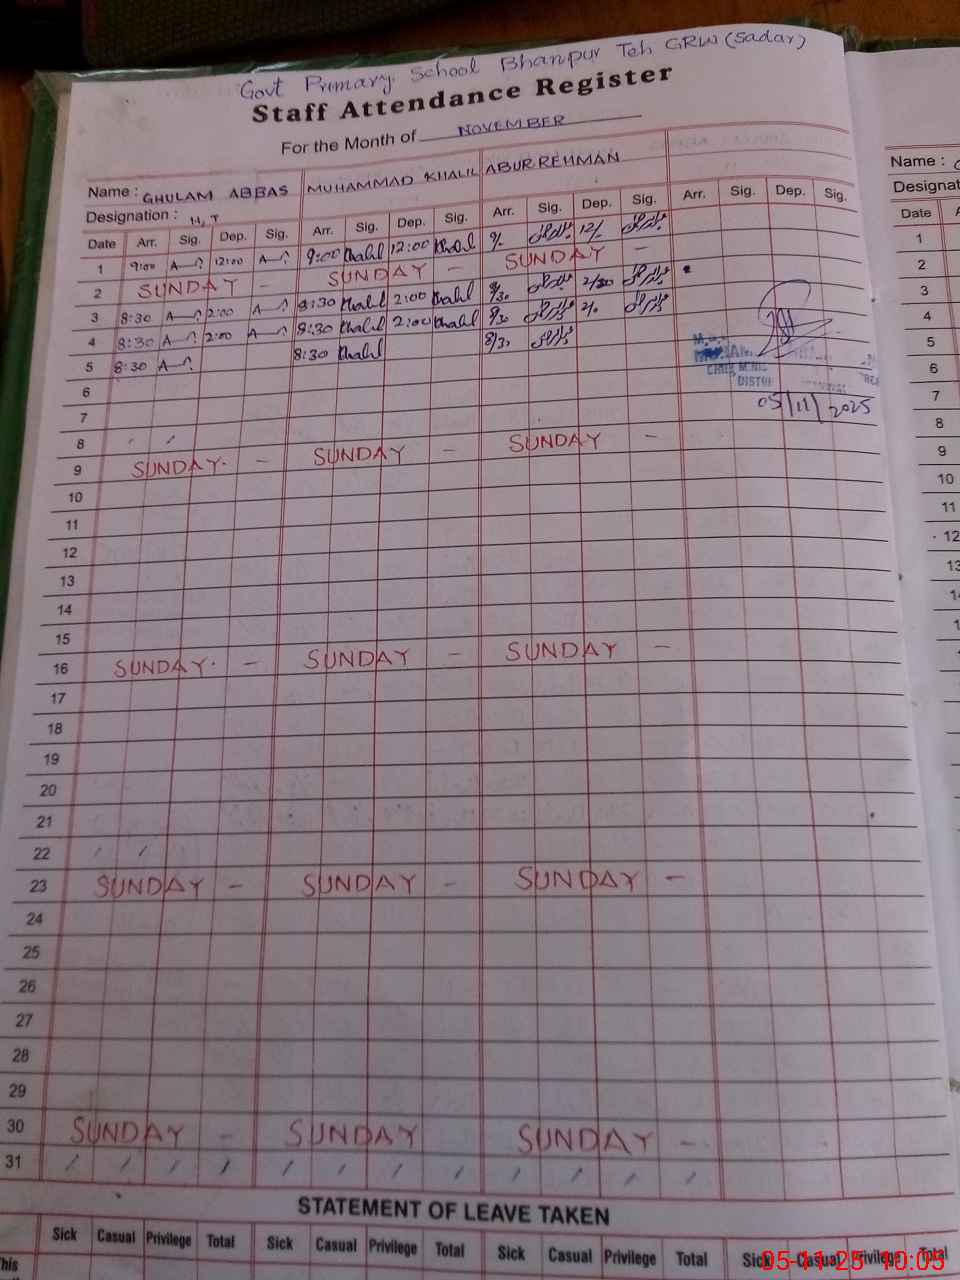 Govt Primary School Bhanpur Teh GRW (Sadar)
Staff Attendance Register
For the Month of NOVEMBER
Name : GHULAM ABBAS MUHAMMAD KHALIL ABUR REHMAN
Designation : H,T
Date Arr. Sig. Dep. Sig. Arr. Sig. Dep. Sig. Arr. Sig. Dep. Sig. Arr. Sig. Dep. Sig.
1 9:00 12:00 9:00 Khalil 12:00 Khalil 9/- 12/
2 SUNDAY - SUNDAY - SUNDAY -
3 8:30 2:00 8:30 Khalil 2:00 Khalil 8/30 2/30
4 8:30 2:00 8:30 Khalil 2:00 Khalil 8/30 2/-
5 8:30 8:30 Khalil 8/30
6
7
05/11/2025
8
9 SUNDAY - SUNDAY - SUNDAY -
10
11
12
13
14
15
16 SUNDAY - SUNDAY - SUNDAY -
17
18
19
20
21
22
23 SUNDAY - SUNDAY - SUNDAY -
24
25
26
27
28
29
30 SUNDAY - SUNDAY SUNDAY -
31 / / / / / / / / / / / /
STATEMENT OF LEAVE TAKEN
Sick Casual Privilege Total Sick Casual Privilege Total Sick Casual Privilege Total Sick Casual Privilege Total
This
Name :
Designat
Date
1
2
3
4
5
6
7
8
9
10
11
12
13
05-11-25 10:05